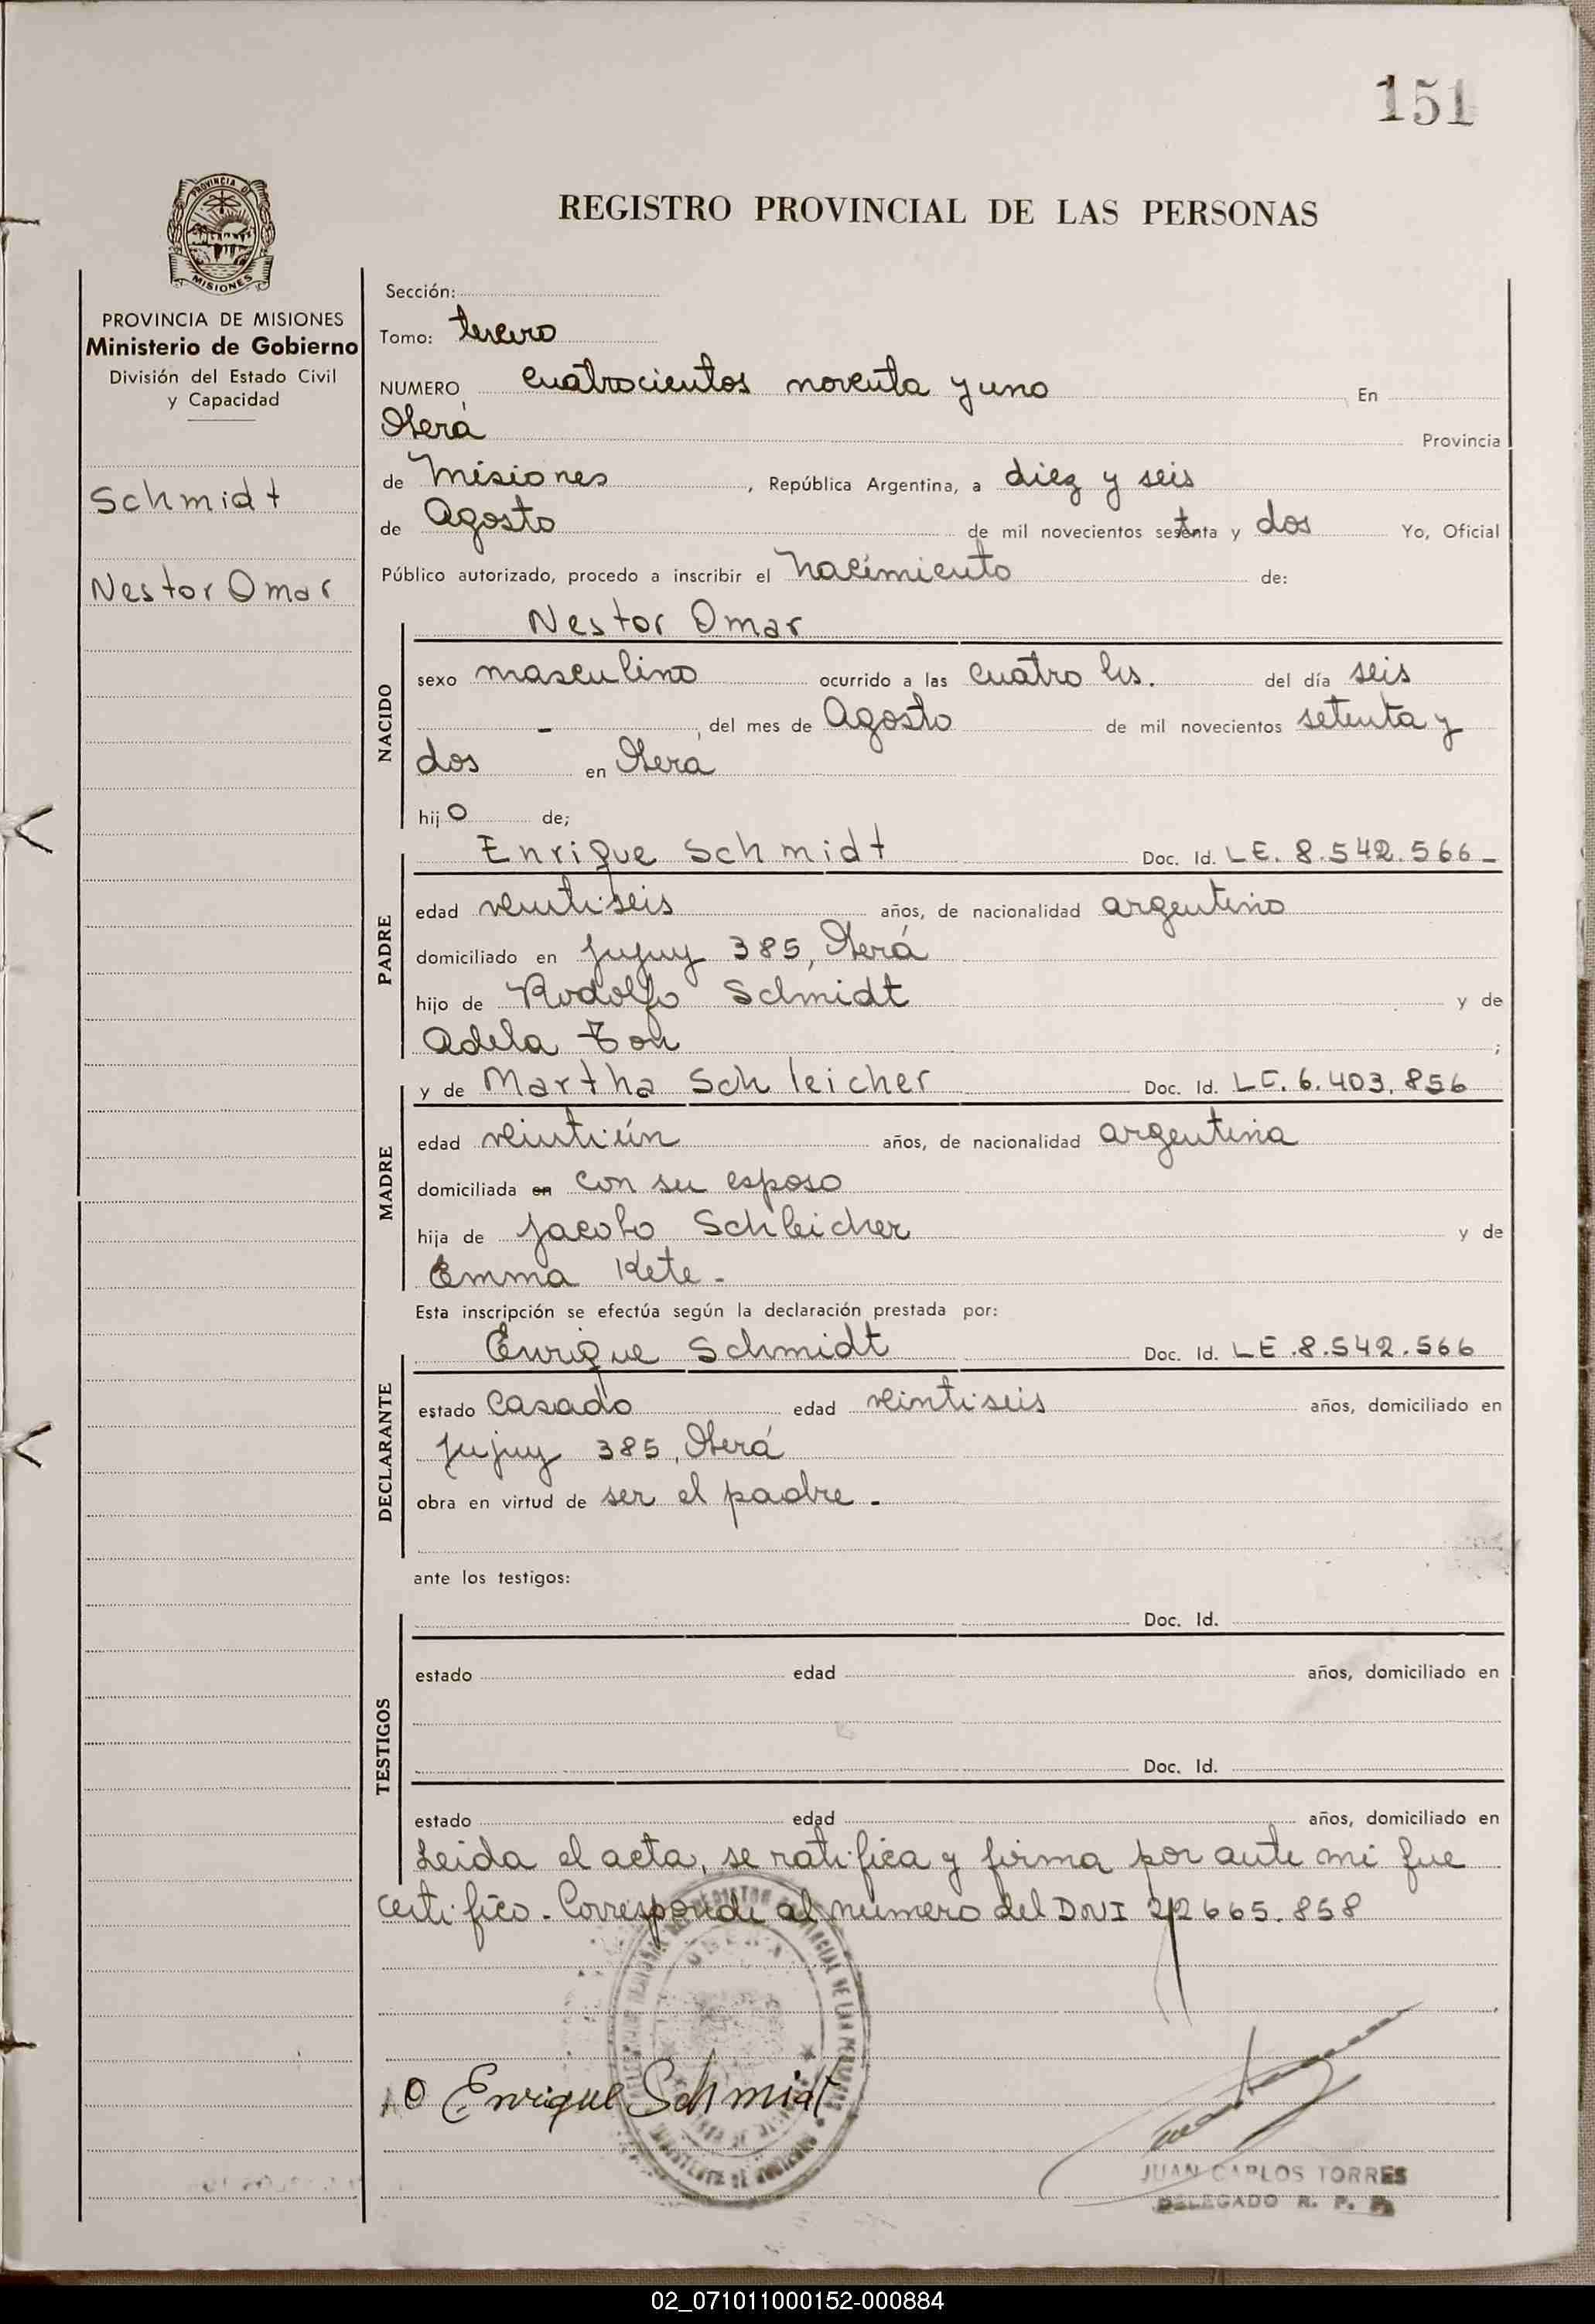 151
REGISTRO PROVINCIAL DE LAS PERSONAS
PROVINCIA DE
MISIONES
PROVINCIA DE MISIONES
Ministerio de Gobierno
División del Estado Civil
y Capacidad
Schmidt
Nestor Omar
Sección:
Tomo: tercero
NUMERO cuatrocientos noventa y uno En
Oberá Provincia
de Misiones, República Argentina, a diez y seis
de Agosto de mil novecientos setenta y dos Yo, Oficial
Público autorizado, procedo a inscribir el nacimiento de:
NACIDO
Nestor Omar
sexo masculino ocurrido a las cuatro hs. del día seis
- , del mes de Agosto de mil novecientos setenta y
dos en Oberá
hijo de;
PADRE
Enrique Schmidt Doc. Id. LE. 8.542.566-
edad veintiseis años, de nacionalidad argentino
domiciliado en Jujuy 385, Oberá
hijo de Rodolfo Schmidt y de
Adela Ton ;
MADRE
y de Martha Schleicher Doc. Id. LC. 6.403.856
edad veintiún años, de nacionalidad argentina
domiciliada en con su esposo
hija de Jacobo Schleicher y de
Emma Kete.-
Esta inscripción se efectúa según la declaración prestada por:
DECLARANTE
Enrique Schmidt Doc. Id. LE.8.542.566
estado casado edad veintiseis años, domiciliado en
Jujuy 385, Oberá
obra en virtud de ser el padre.-
ante los testigos:
TESTIGOS
Doc. Id.
estado edad años, domiciliado en
Doc. Id.
estado edad años, domiciliado en
Leida el acta, se ratifica y firma por ante mi que
certifico. Corresponde al número del DNI 22665.858
Enrique Schmidt
JUAN CARLOS TORRES
DELEGADO R. P. P.
02_071011000152-000884